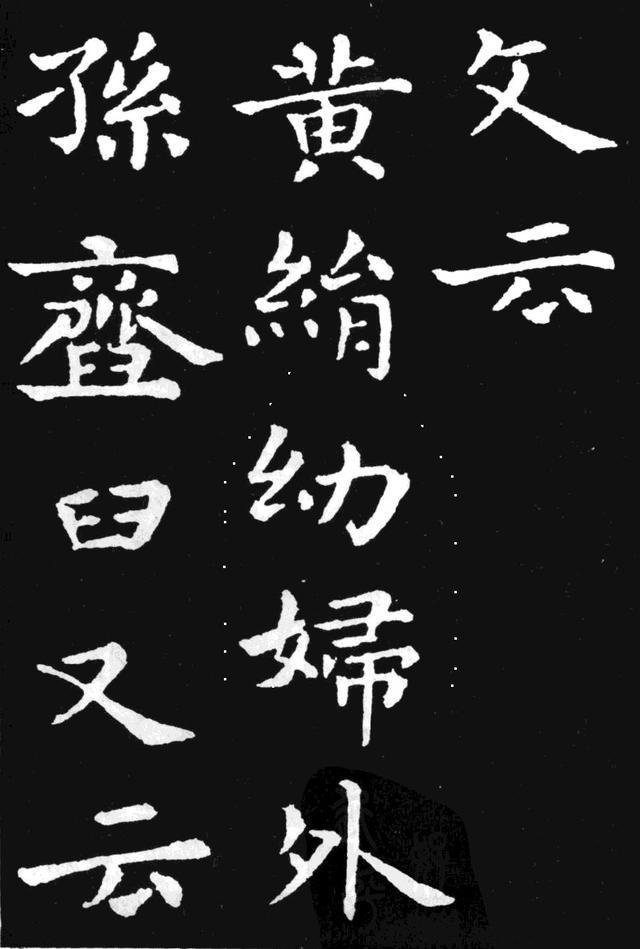 文云
黄絹幼婦外
孫齏臼又云